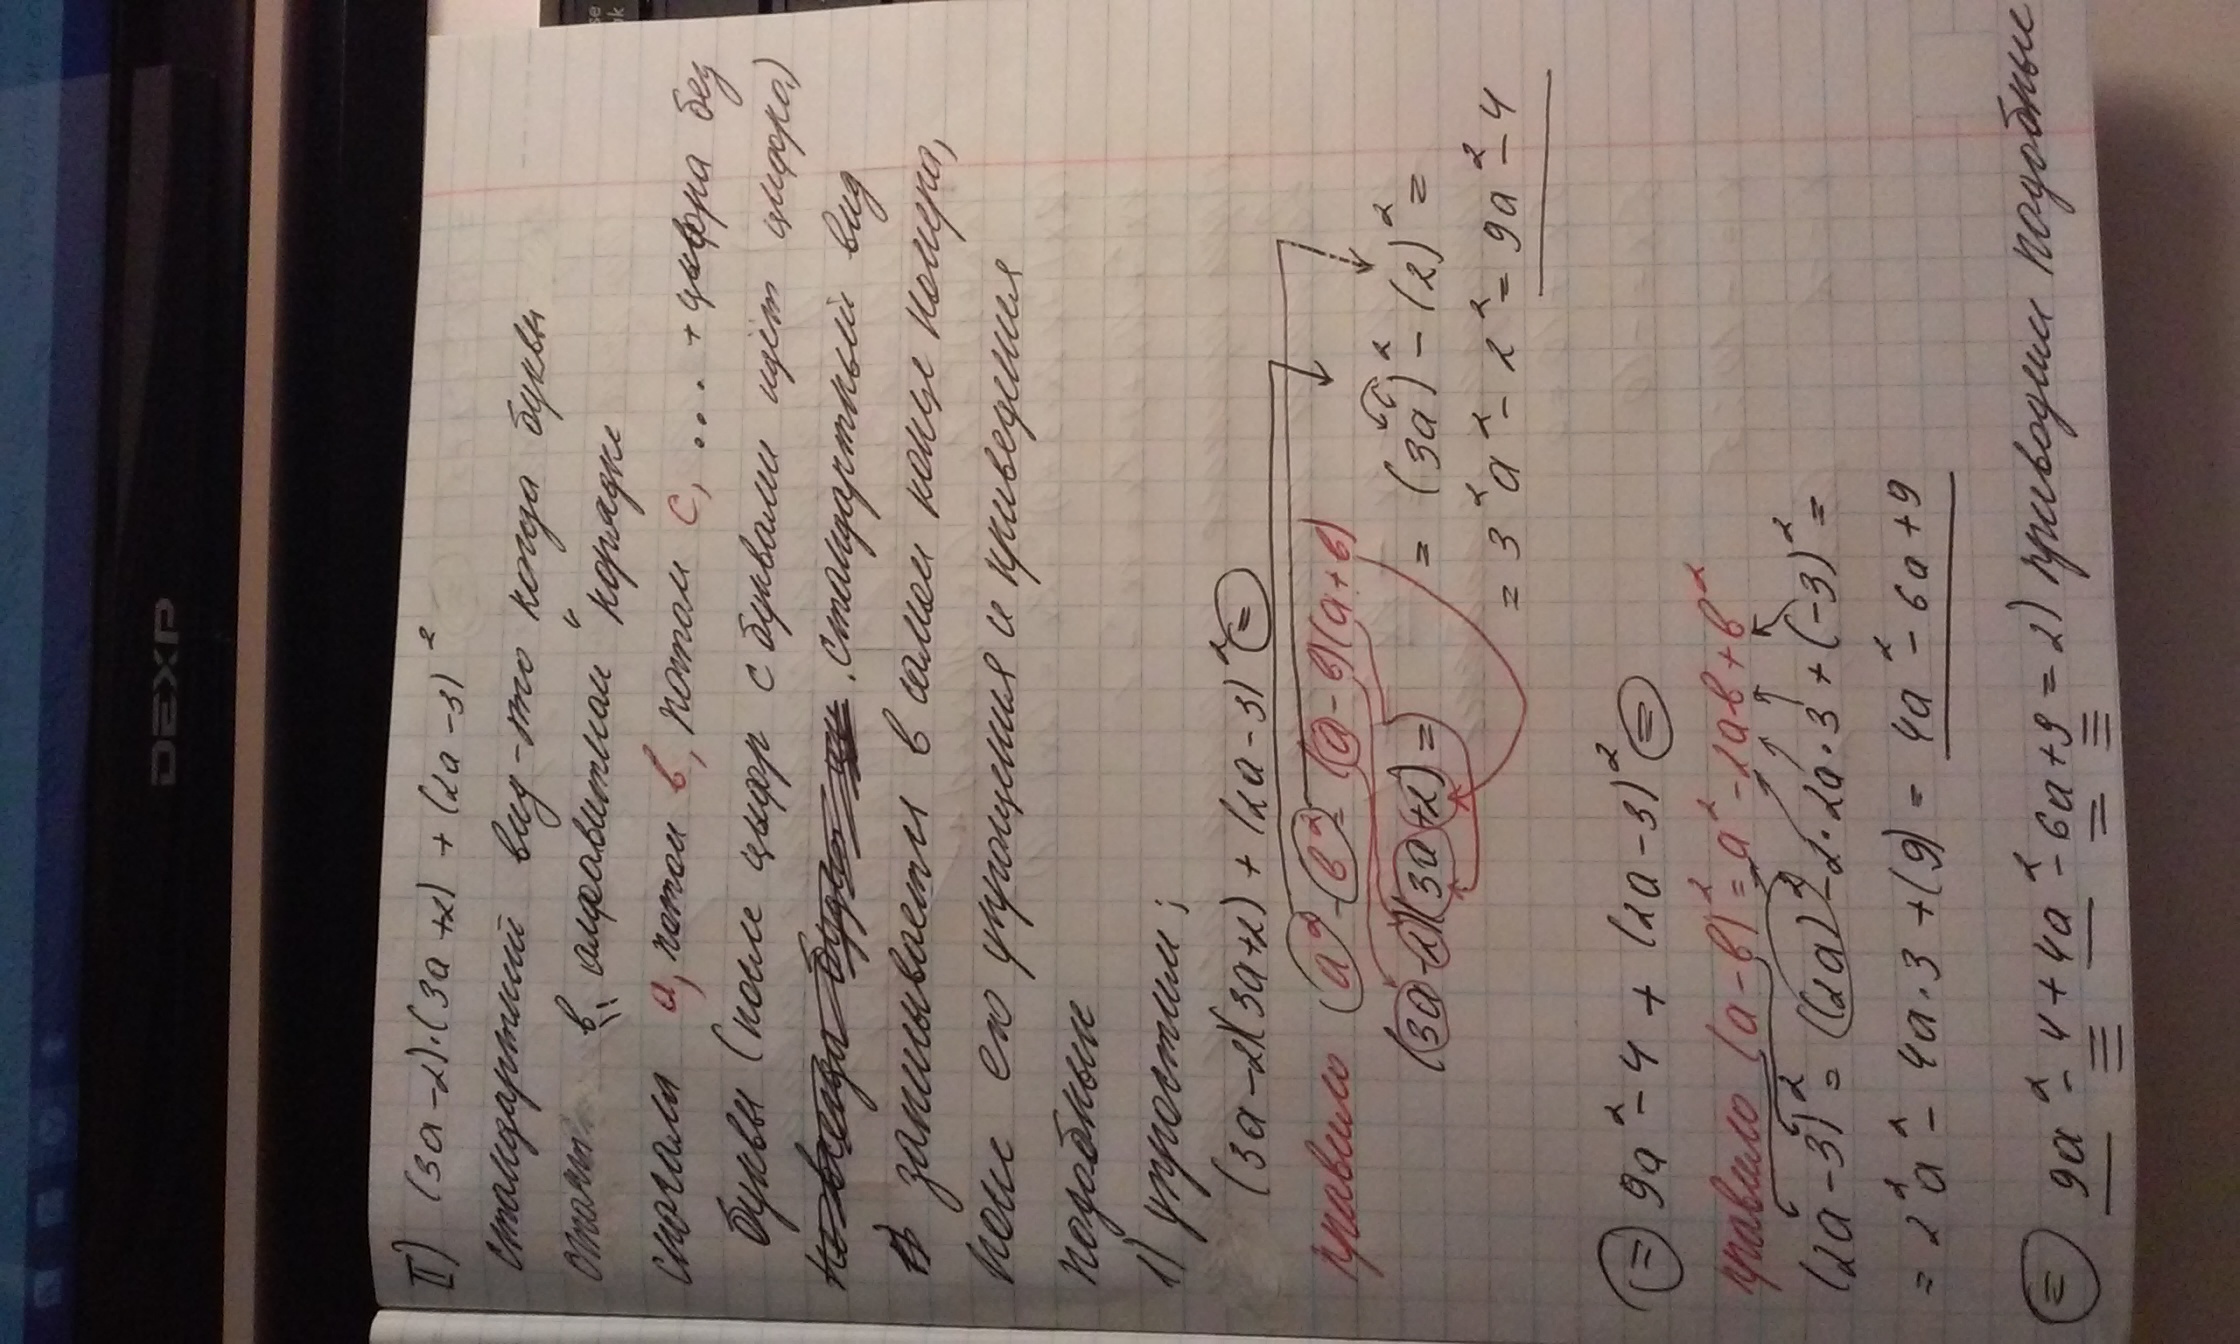 DEXP
II) (3a-2)·(3a+2) + (2a-3)²
стандартний вид-это когда буквы
стоят в „алфавитном" порядке
сначала а, потом в, потом с, ... + цифра без
буквы (после цифр с буквами идёт цифра)
стандартный вид
записывается в самом конце номера,
после его упрощения и приведения
подобных
1) упростим;
(3a-2)(3a+2) + (2a-3)² =
правило a²-в² = (a-в)(a+в)
(3a-2)(3a+2) = = (3a)² - (2)² =
= 3²a² - 2² = 9a² - 4
= 9a² - 4 + (2a-3)² =
правило (a-в)² = a² - 2aв + в²
(2a-3)² = (2a)² - 2·2a·3 + (-3)² =
= 2²a² - 4a·3 + (9) = 4a² - 6a + 9
= 9a² - 4 + 4a² - 6a + 9 = 2) приводим подобные